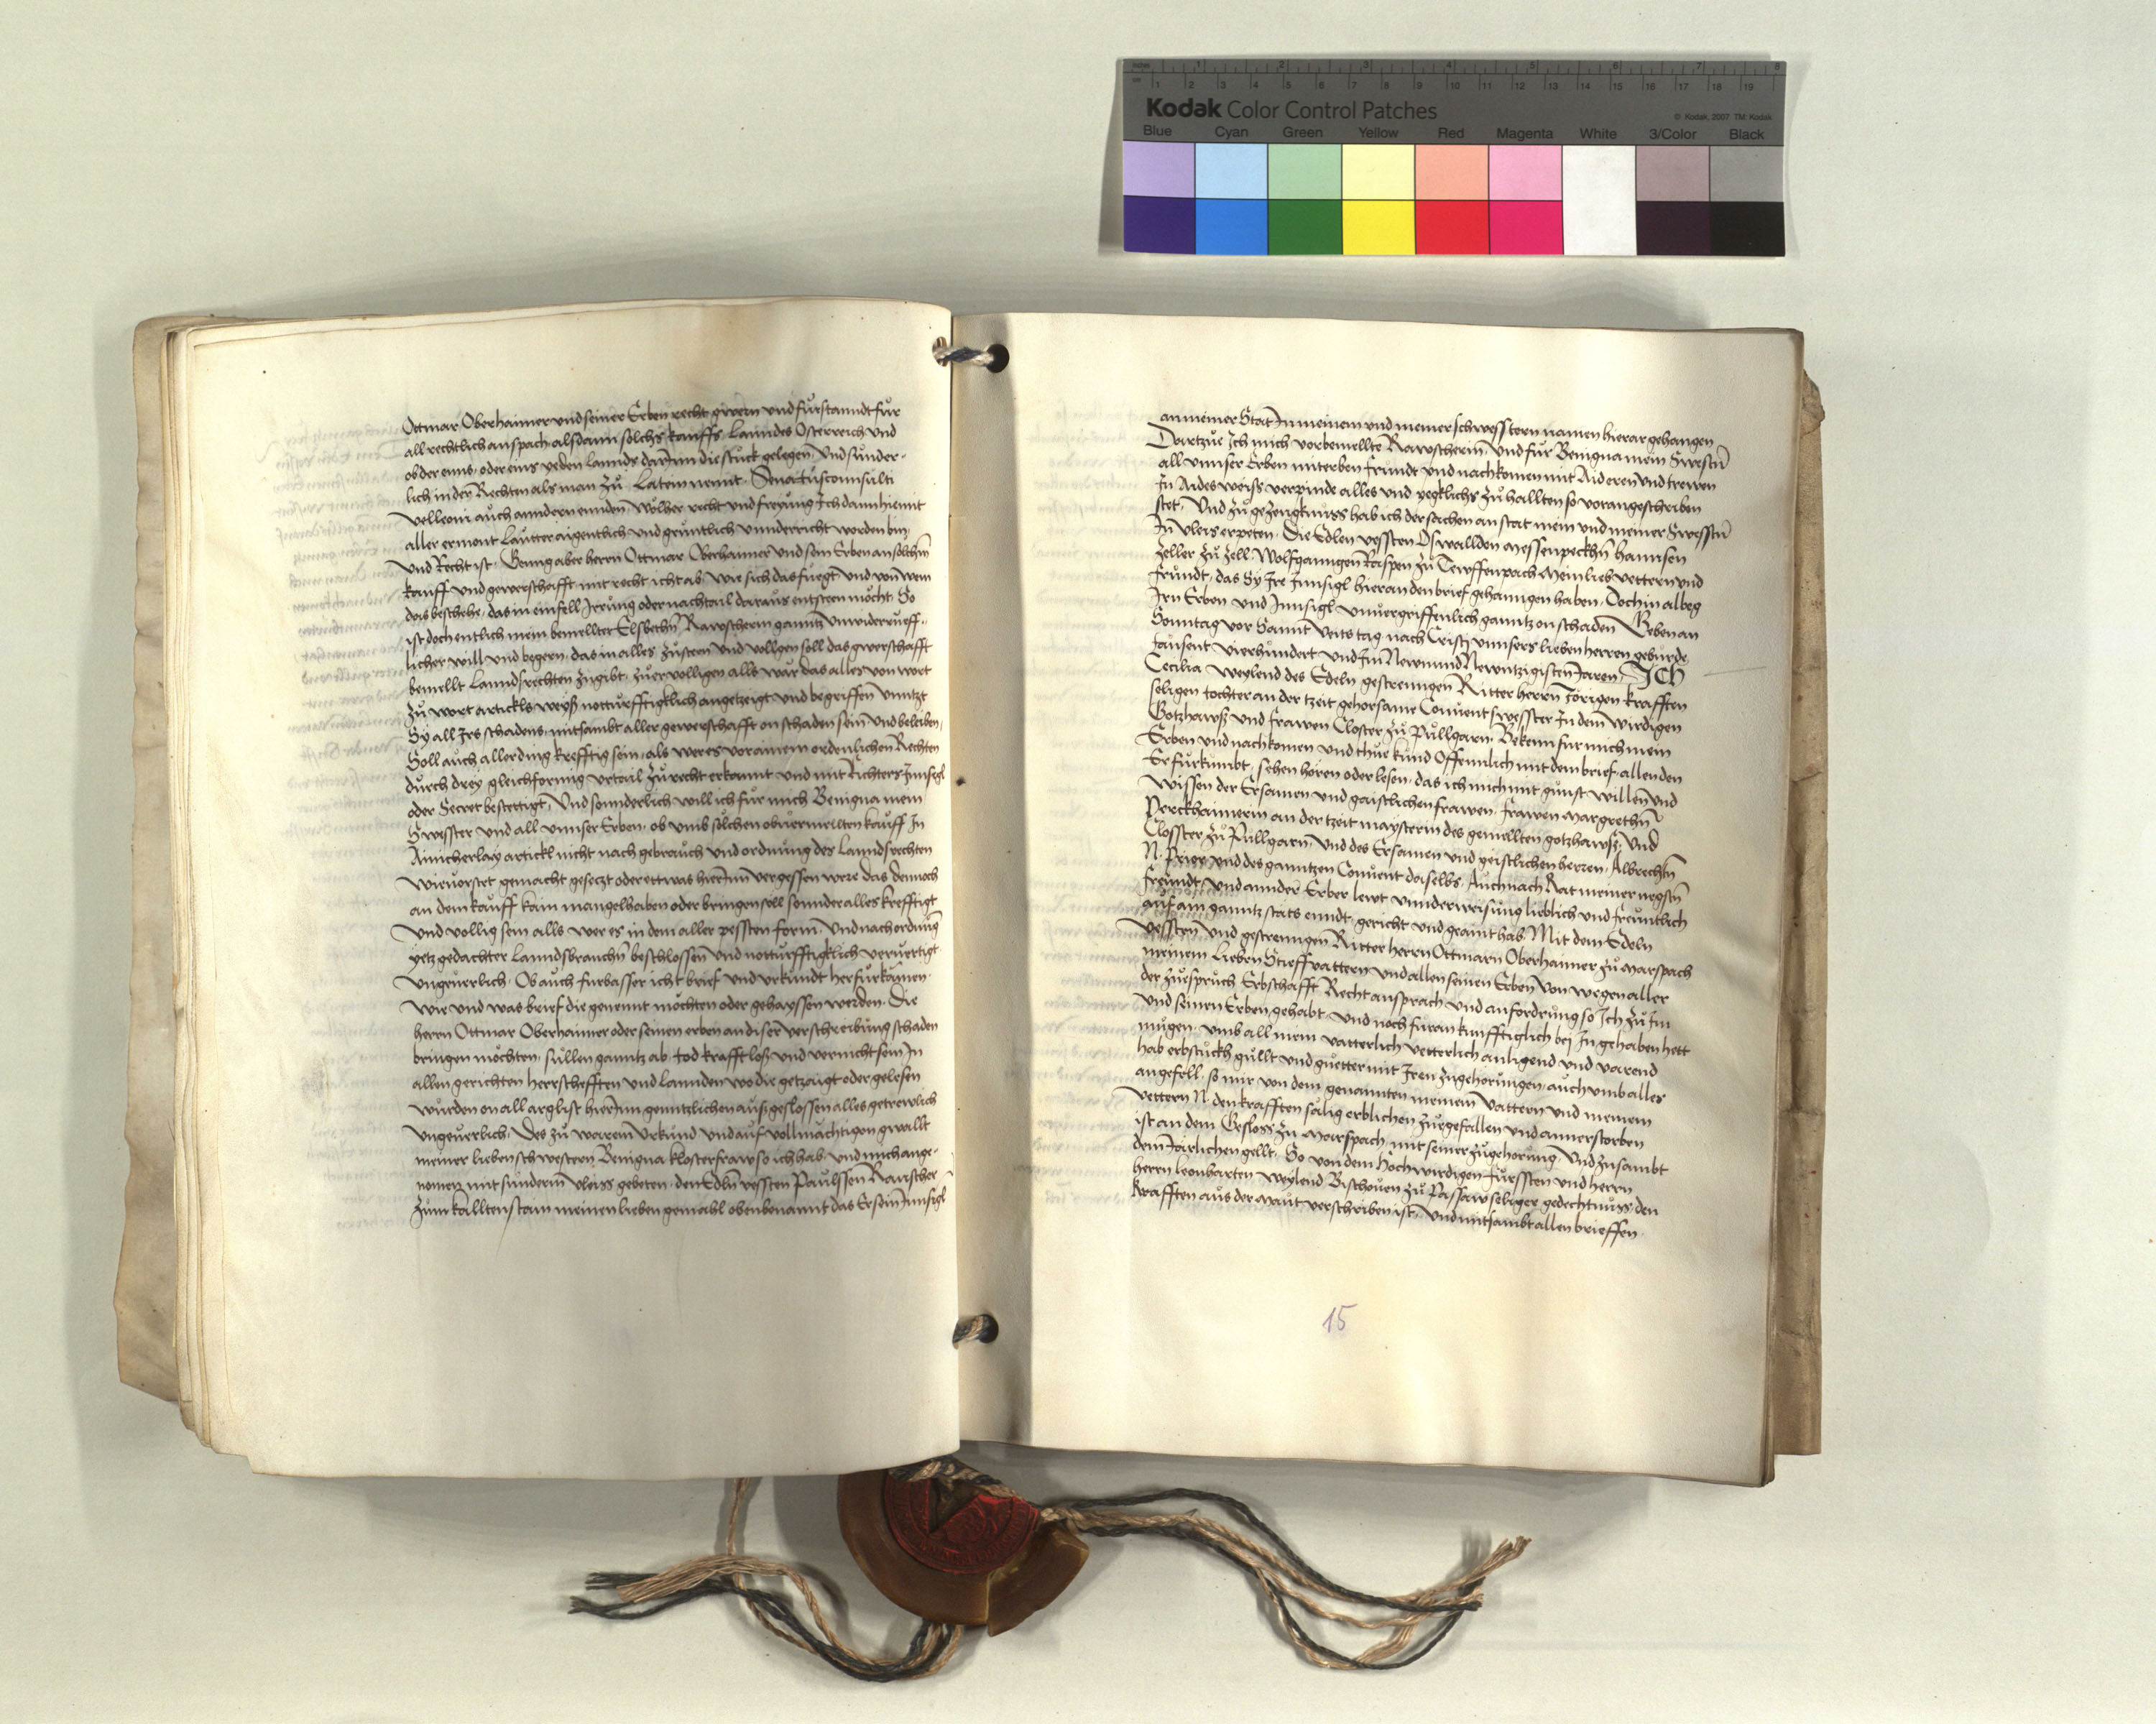 inches 1 2 3 4 5 6 7 8
cm 1 2 3 4 5 6 7 8 9 10 11 12 13 14 15 16 17 18 19
Kodak Color Control Patches
© Kodak, 2007 TM: Kodak
Blue Cyan Green Yellow Red Magenta White 3/Color Black
Ottmar Oberhaimer und seiner Erben recht gwern und fürstanndt für
all rechtlich anspach als dann solchs kauffs Lanndes Osterreich und
ob der enns, oder eins yeden Lannds darInn die stuck gelegen, Und sunder-
lich in den Rechten als man zu Latein nennt. Senatusconnsulti
velleoni auch anndern ennden, wolher recht und freyung Ich dann hiemit
aller ermont lautter aigentlich und gruntlich unnderricht worden bin,
und Recht ist. Gienng aber herrn Ottmar Oberhaimer und sein Erben an solhem
kauff und gewerschafft mit recht icht ab, wie sich das fuegt und von wem
das beschehe, das in einfell Irrung oder nachtail daraus entsteen möcht. So
ist doch entlich mein bemellter Elsbethn Rawscherin ganntz unwiderrueff-
licher will und begern, das in alles zusteen und vollgen soll das gwerschafft
bemellt Lanndsrechten zugibt, zu ervolligen alls war das alles von wort
zu wort artickls weyß notturfftigklich angetzeigt und begriffen unntzt
Sy all Irs schadens, mitsambt aller gewerschafft on schaden sein und beleiben,
Soll auch allerding krefftig sein, als wer es vor ainem ordenlichen Rechten
durch drey gleichformig urtail zu recht erkannt und mit Richters Innsigl
oder Secret bestettigt, Und sonnderlich will ich für mich Benigna mein
Swesster und all unnser Erben, ob umb solchen obuermellten kauff In
Ainicherlay artickl nicht nach gebrauch und ordnung des Lanndsrechten
wie vorstet gemacht gesetzt oder ettwas hierInn vergessen were das dennoch
an dem kauff kain mangel haben oder bringen soll sonnder alles krefftigt
und vollig sein alls wer es in dem aller pessten form, Und nach ordnung
yetz gedachter Lanndsbrauchn beschlossen und notturfftigklich ververtigt
ungeuerlich. Ob auch furbasser icht brief und urkundt herfurkamen
wie und was brief die genennt möchten oder gehayssen werden. Die
herrn Ottmar Oberhaimer oder seinen erben an diser verschreibung schaden
bringen möchten, sullen ganntz ab tod krafftloß und vernicht sein In
allen gerichten herrschefften und Lannden wo die getzaigt oder gelesen
wurden on all arglist hierInn genntzlichen ausgeslossen alles getrewlich
ungeuerlich. Des zu warem Urkund und auf vollmächtigen gwallt
meiner lieben schwestern Benigna klosterfraw so ich hab und mich ange-
nomen mit sunderm vleiss gebeten, den Edln vessten Paulssen Rauscher
zum kalltenstain meinen lieben gemahl obenbenannt das Er sein Innsigl
an meiner Stat In meinem und meiner schwesstern namen hierar gehangen
Dartzue Ich mich vorbemellte Rawscherin, und für Benigna mein Swestn
all unnser Erben miterben frundt und nachkomen mit Aid eren und trewen
In Aides weiss verpinde alles und yegklichs zu hallten so vorangeschriben
stet. Und zu getzengknuss hab ich der sachen an stat mein und meiner Swesstn
In vleis erpeten. Die Edlen vessten Oswallden Messenpeckhn hannsen
Zeller zu Zell Wolfganngen Raspen zu Tewffenpach mein lieb vettern und
frundt, das Sy Ire Innsigl hieran den brief gehanngen haben. Doch in albeg
Irn Erben und Innsigl unuergriffenlich ganntz on schaden. Geben an
Sonntag vor Sannt Veits tag nach Cristj unnsers lieben herren geburde
tausent vierhundert und Im Newnund Newntzigisten Jaren. ICH
Cecilia weylend des Edeln gestrenngen Ritter herrn Jörigen krafften
seligen tochter an der tzeit gehorsame Conuentswesster In dem wirdigen
Gotzhawß und frawen Closter zu Pullgarn. Bekenn für mich mein
Erben und nachkomen und thue kund Offennlich mit dem brief allen den
Er furkumbt, sehen horen oder lesen, das ich mich mit gunst willen und
wissen der Ersamen und gaistlichen frawen, frawen Margrethn
Perckhaimerin an der tzeit maysterin des gemellten gotzhawß und
Closster zu Pullgarn, und des Ersamen und geistlichen herren, Albrechtn
N. Prior und des ganntzen Conuent daselbs, Auch nach Rat meiner negstn
freundt, und annder Erber lewt unnderweisung lieblich und freuntlich
auf ain ganntz stäts enndt, gericht und geaint hab, Mit dem Edeln
vessten und gestrenngen Ritter herrn Ottmarn Oberhaimer zu Marspach
meinem lieben Stieffvattern und allen seinen Erben von wegen aller
der zuespruch Erbschafft Recht ansprach und anfordrung so Ich zu Im
und seinen Erben gehabt und noch furan kunfftiglich bej In gehaben hett
mugen, umb all mein vatterlich vetterlich anligend und varend
hab erbstuckh gullt und guetter mit Iren zugehorungen, auch umb alles
angefell, so mir von dem genannten meinem Vattern und meinem
vettern N. den krafften salig erblichen zuegefallen und annerstorben
ist an dem Gesloss zu Marspach, mit seiner zugehorung und zusambt
dem Järlichen gellt, So von dem Hochwirdigen Fürssten und herrn
herrn Leonharten weylend Bischouen zu Passaw seliger gedechtnuss den
krafften aus der Maut verschriben ist, und mitsambt allen brieffen
15